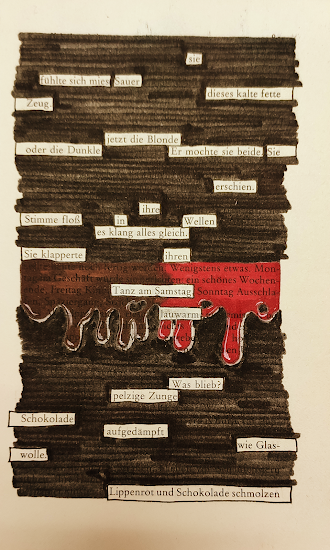 sie
fühlte sich mies Sauer
dieses kalte fette
Zeug.
jetzt die Blonde
oder die Dunkle Er mochte sie beide. Sie
erschien.
ihre
Stimme floß in Wellen
es klang alles gleich.
Sie klapperte ihren
Wenigstens etwas. Mon-
ein schönes Wochen-
Tanz am Samstag, Sonntag Ausschla-
lauwarm
Was blieb?
pelzige Zunge
Schokolade
aufgedämpft
wie Glas-
wolle.
Lippenrot und Schokolade schmolzen